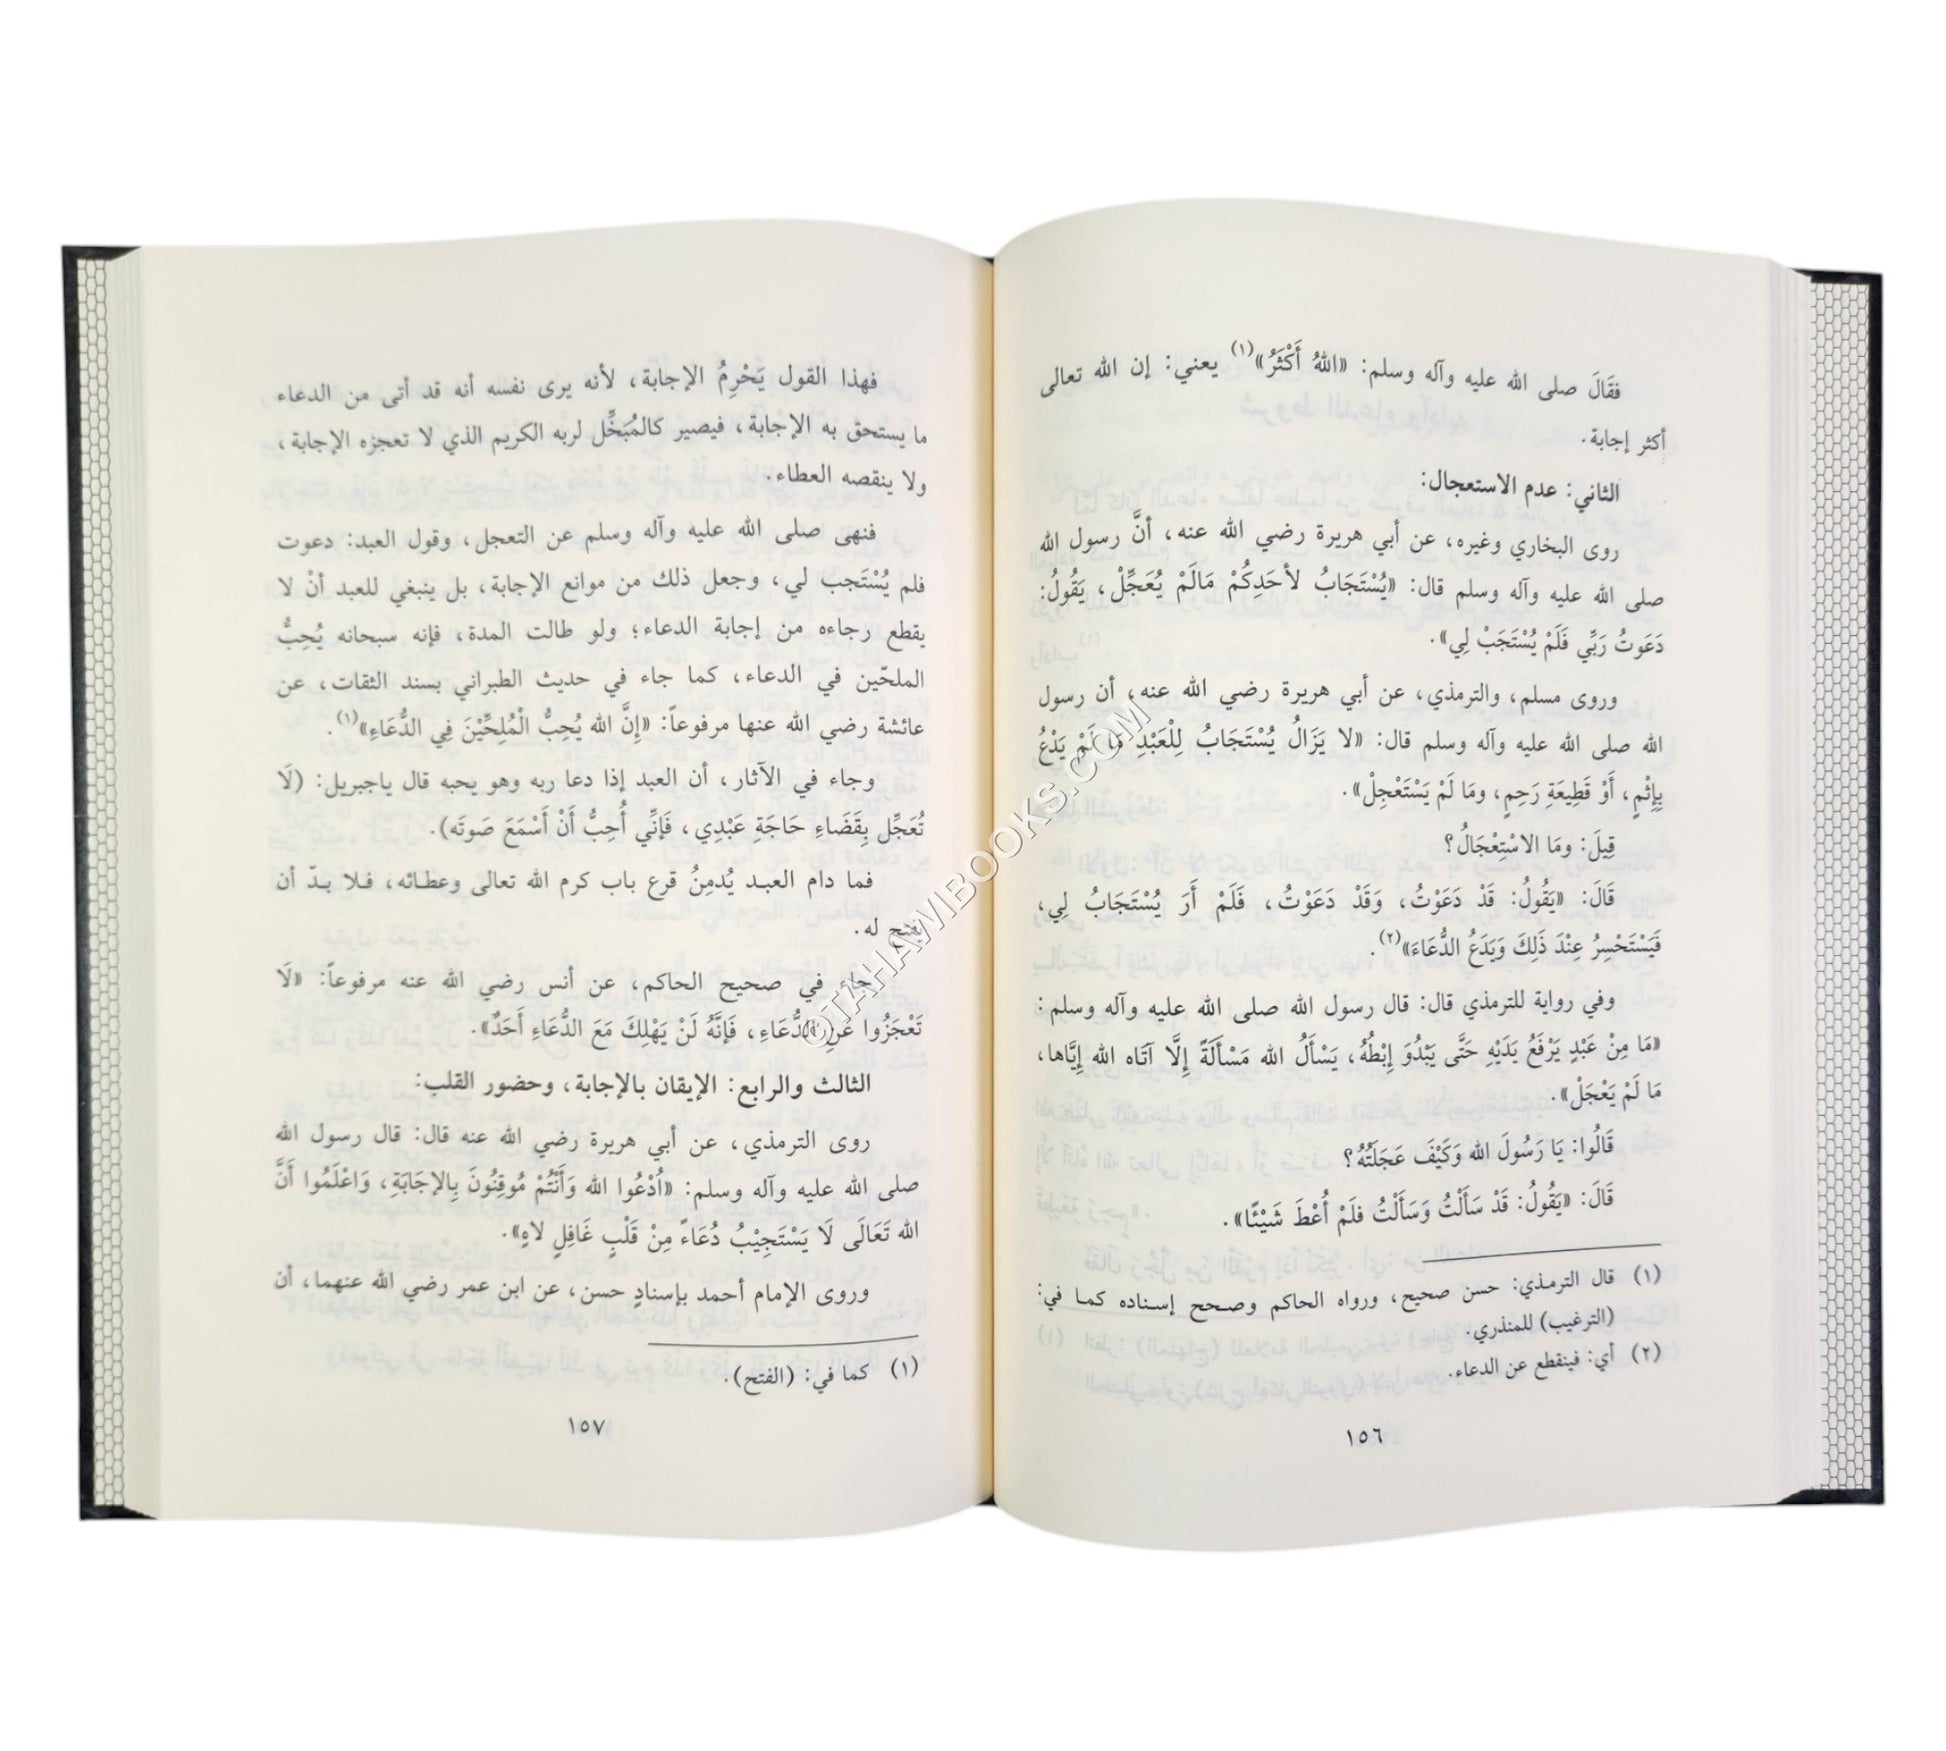 فقَالَ صلى الله عليه وآله وسلم: «اللهُ أَكْثَرُ»(١) يعني: إن الله تعالى
أكثر إجابة.
الثاني: عدم الاستعجال:
روى البخاري وغيره، عن أبي هريرة رضي الله عنه، أنَّ رسول الله
صلى الله عليه وآله وسلم قال: «يُسْتَجَابُ لأحَدِكُمْ مَالَمْ يُعَجِّلْ، يَقُولُ:
دَعَوتُ رَبِّي فَلَمْ يُسْتَجَبْ لِي».
وروى مسلم، والترمذي، عن أبي هريرة رضي الله عنه، أن رسول
الله صلى الله عليه وآله وسلم قال: «لا يَزَالُ يُسْتَجَابُ لِلْعَبْدِ مَا لَمْ يَدْعُ
بِإِثْمٍ، أَوْ قَطِيعَةِ رَحِمٍ، ومَا لَمْ يَسْتَعْجِلْ».
قِيلَ: ومَا الاسْتِعْجَالُ؟
قَالَ: «يَقُولُ: قَدْ دَعَوْتُ، وَقَدْ دَعَوْتُ، فَلَمْ أَرَ يُسْتَجَابُ لِي،
فَيَسْتَحْسِرُ عِنْدَ ذَلِكَ وَيَدَعُ الدُّعَاءَ»(٢).
وفي رواية للترمذي قال: قال رسول الله صلى الله عليه وآله وسلم:
«مَا مِنْ عَبْدٍ يَرْفَعُ يَدَيْهِ حَتَّى يَبْدُوَ إِبْطُهُ، يَسْأَلُ الله مَسْأَلَةً إِلَّا آتَاه الله إِيَّاها،
مَا لَمْ يَعْجَلْ».
قَالُوا: يَا رَسُولَ الله وَكَيْفَ عَجَلَتُهُ؟
قَالَ: «يَقُولُ: قَدْ سَأَلْتُ وَسَأَلْتُ فلَمْ أُعْطَ شَيْئًا».
(١) قال الترمذي: حسن صحيح، ورواه الحاكم وصحح إسناده كما في:
(الترغيب) للمنذري.
(٢) أي: فينقطع عن الدعاء.
١٥٦
فهذا القول يَحْرِمُ الإجابة، لأنه يرى نفسه أنه قد أتى من الدعاء
ما يستحق به الإجابة، فيصير كالمُبَخِّل لربه الكريم الذي لا تعجزه الإجابة،
ولا ينقصه العطاء.
فنهى صلى الله عليه وآله وسلم عن التعجل، وقول العبد: دعوت
فلم يُسْتَجب لي، وجعل ذلك من موانع الإجابة، بل ينبغي للعبد أنْ لا
يقطع رجاءه من إجابة الدعاء؛ ولو طالت المدة، فإنه سبحانه يُحِبُّ
الملحّين في الدعاء، كما جاء في حديث الطبراني بسند الثقات، عن
عائشة رضي الله عنها مرفوعاً: «إِنَّ الله يُحِبُّ الْمُلِحِّيْنَ فِي الدُّعَاءِ»(١).
وجاء في الآثار، أن العبد إذا دعا ربه وهو يحبه قال ياجبريل: (لَا
تُعَجِّل بِقَضَاءِ حَاجَةِ عَبْدِي، فَإِنِّي أُحِبُّ أَنْ أَسْمَعَ صَوتَه).
فما دام العبد يُدمِنُ قرع باب كرم الله تعالى وعطائه، فلا بدّ أن
يفتح له.
جاء في صحيح الحاكم، عن أنس رضي الله عنه مرفوعاً: «لَا
تَعْجَزُوا عَنِ الدُّعَاءِ، فَإِنَّهُ لَنْ يَهْلِكَ مَعَ الدُّعَاءِ أَحَدٌ».
الثالث والرابع: الإيقان بالإجابة، وحضور القلب:
روى الترمذي، عن أبي هريرة رضي الله عنه قال: قال رسول الله
صلى الله عليه وآله وسلم: «اُدْعُوا الله وَأَنْتُمْ مُوقِنُونَ بِالإجَابَةِ، وَاعْلَمُوا أَنَّ
الله تَعَالَى لَا يَسْتَجِيْبُ دُعَاءً مِنْ قَلْبٍ غَافِلٍ لاهٍ».
وروى الإمام أحمد بإسنادٍ حسن، عن ابن عمر رضي الله عنهما، أن
(١) كما في: (الفتح).
١٥٧
©TAHAWIBOOKS.COM